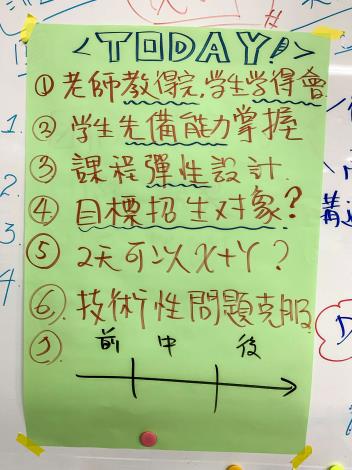 <TODAY!>
① 老師教得完,學生學得會
② 學生先備能力掌握
③ 課程彈性設計.
④ 目標招生対象?
⑤ 2天可以X+Y?
⑥ 技術性問題克服
⑦ 前 中 後
1.
2.
3
4